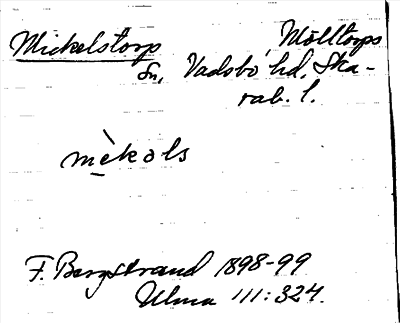 Mickelstorp
Mölltorps
Sn, Vadsbo hd, Ska-
rab. l.
mèkols
F. Bergstrand 1898-99
Ulma 111:324.